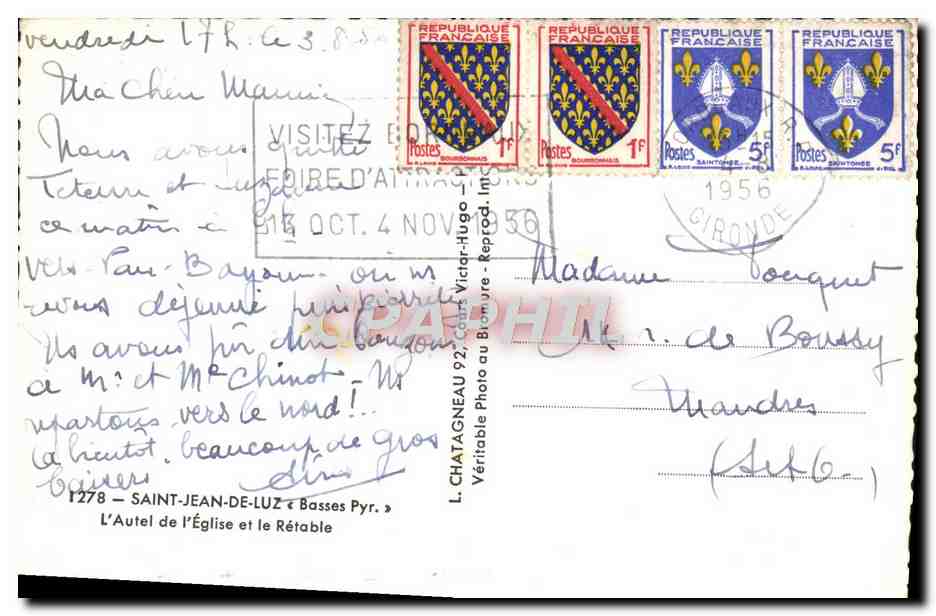 vendredi 17h. le 3.8.
Ma Chère Mamie
Nous avons quitté
et
ce matin à 9h
vers Pau - Bayonne - où ns
avons déjeuné
Ns avons pu dire bonjour
à Mr et Me Chinot - Ns
repartons vers le nord !..
à bientôt, beaucoup de gros
baisers
1278 — SAINT-JEAN-DE-LUZ « Basses Pyr. »
L'Autel de l'Église et le Rétable
L. CHATAGNEAU 92, Cours Victor-Hugo —
Véritable Photo au Bromure - Reprod. Int
REPUBLIQUE FRANÇAISE
Postes 1F
BOURBONNAIS
REPUBLIQUE FRANÇAISE
Postes 1F
BOURBONNAIS
REPUBLIQUE FRANÇAISE
Postes 5F
SAINTONGE
REPUBLIQUE FRANÇAISE
Postes 5F
SAINTONGE
VISITEZ BORDEAUX
FOIRE D'ATTRACTIONS
13 OCT. 4 NOV. 1956
1956
GIRONDE
Madame Pouquet
r. de Boussy
Mandres
(S et O.)
PAPHIL